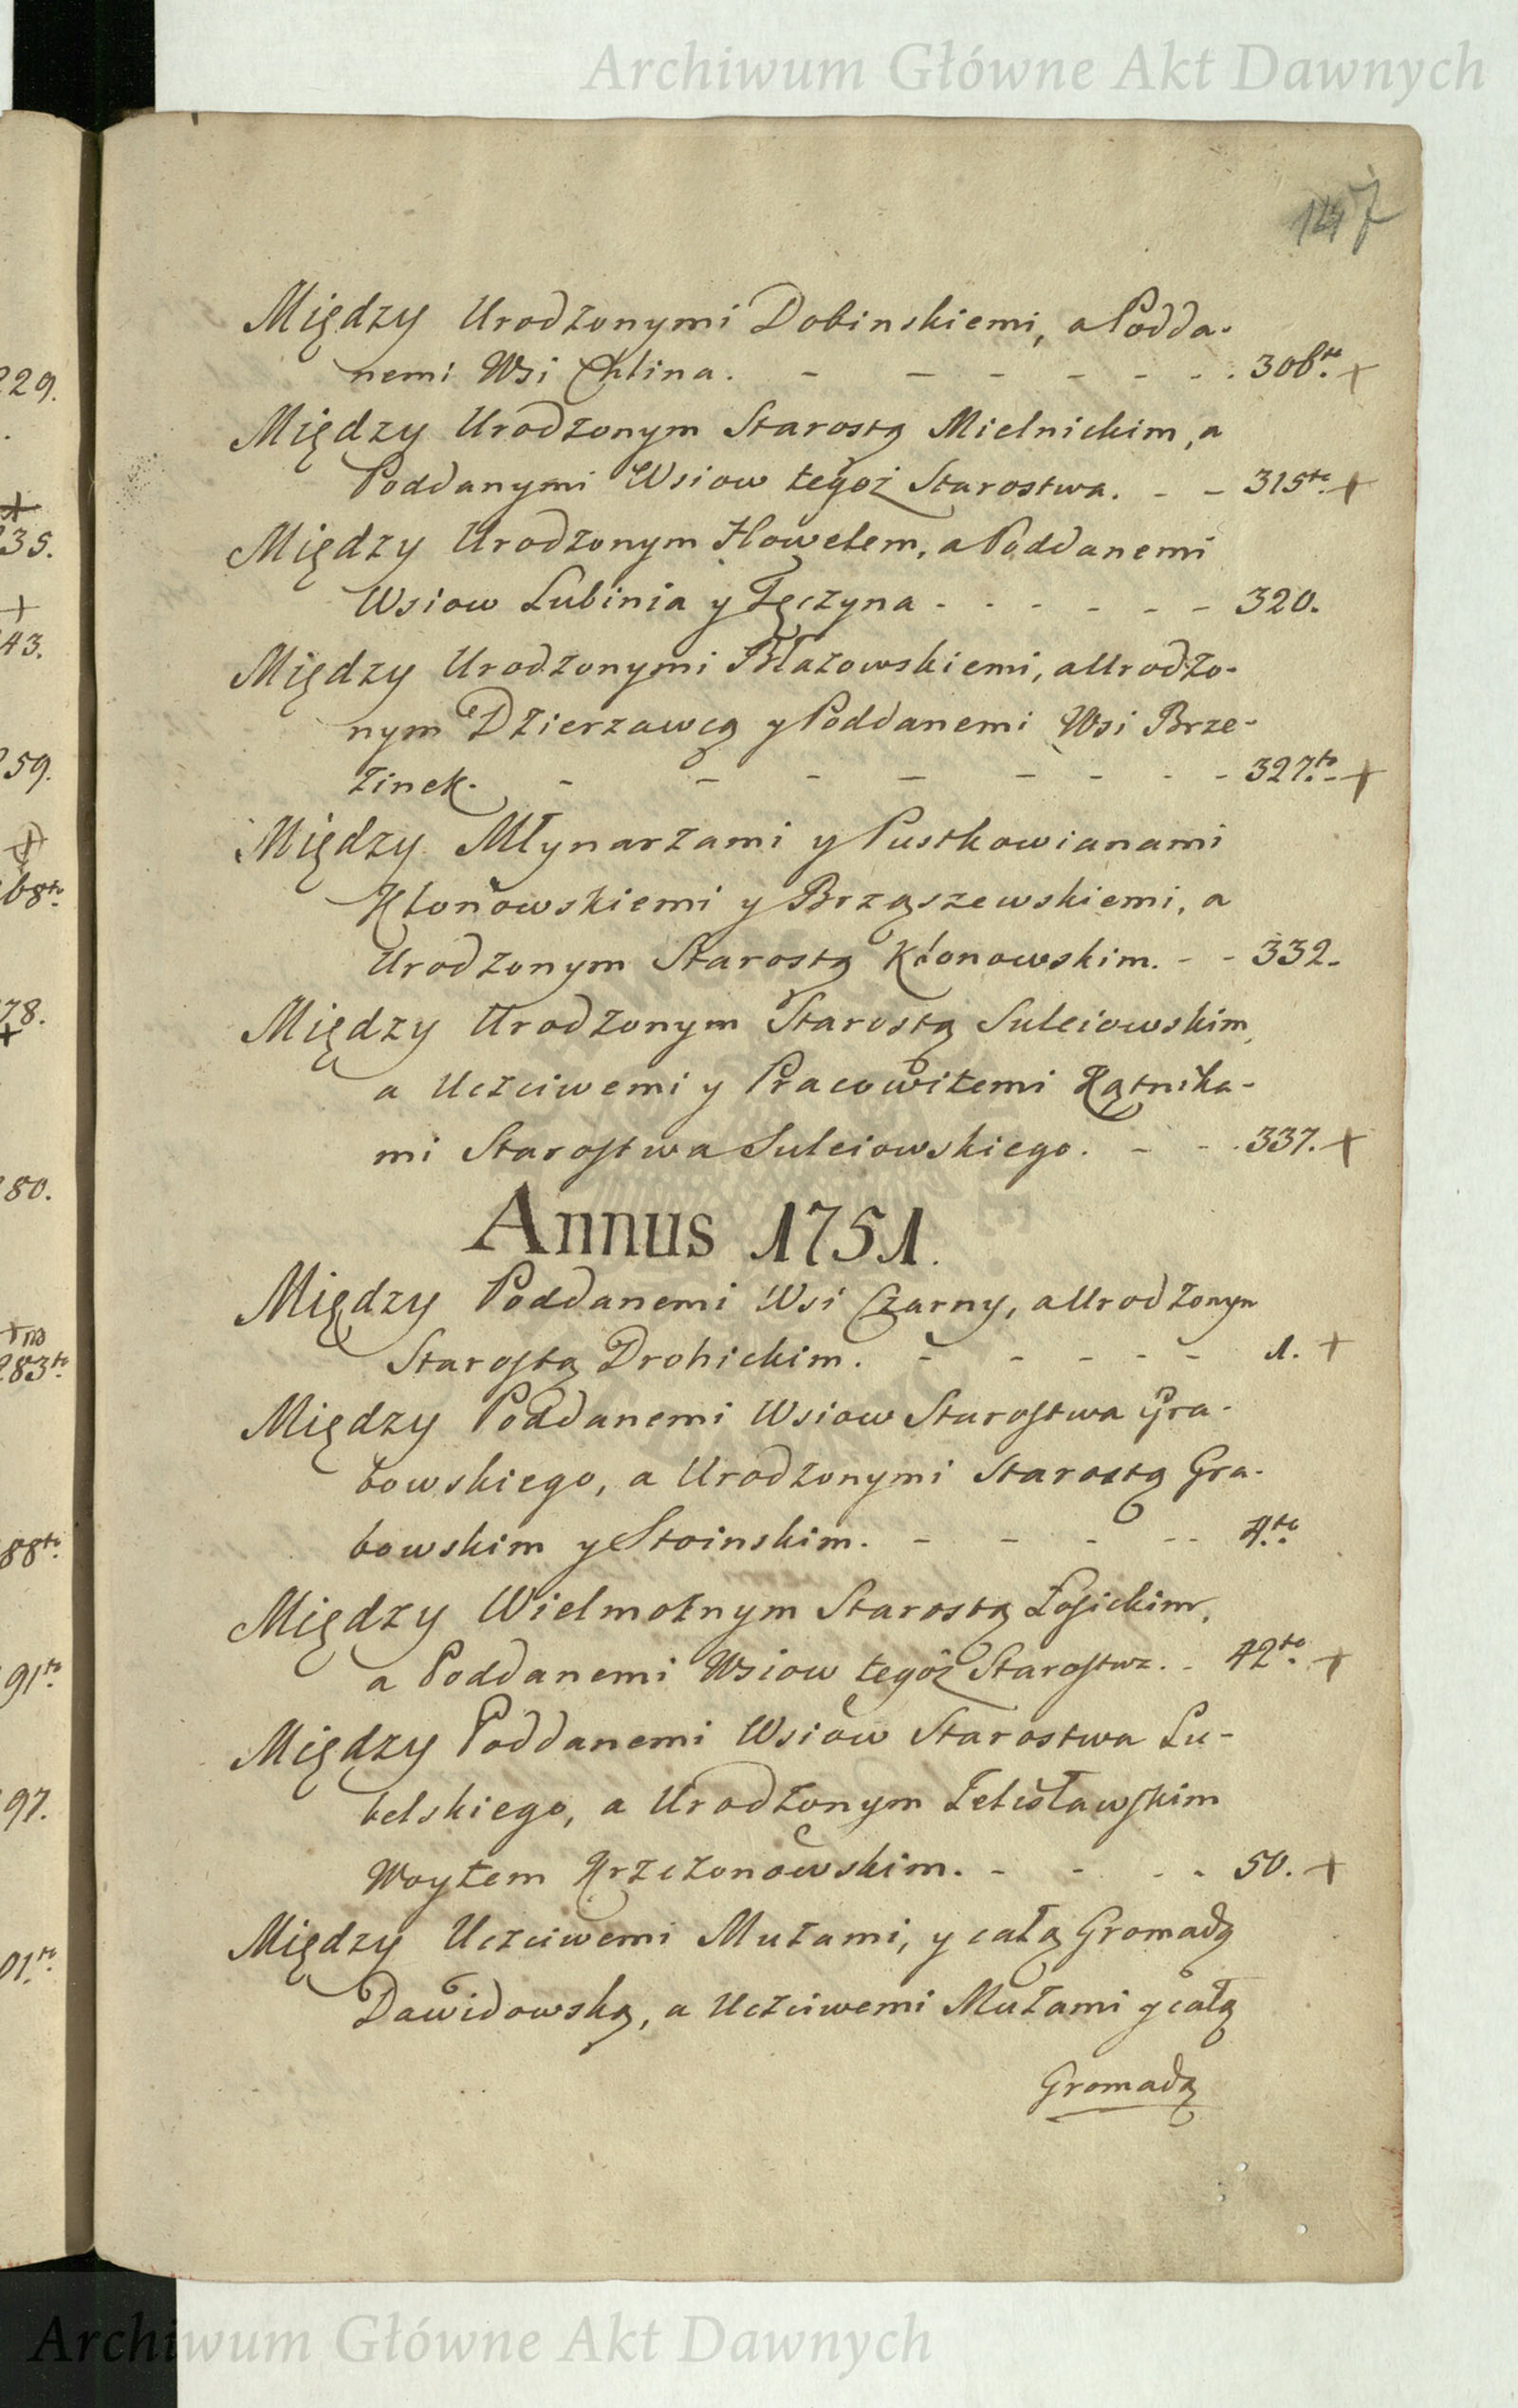 Archiwum Główne Akt Dawnych
147
Między Urodzonymi Dobinskiemi, a Podda-
nemi Wsi Chlina. - - - - - - - 306to. +
Między Urodzonym Starostą Mielnickim, a
Poddanymi Wsiow tegoż Starostwa. - - 315to. +
Między Urodzonym a Poddanemi
Wsiow Lubinia y Łęczyna - - - - - - 320.
Między Urodzonymi Błazowskiemi, a Urodzo-
nym Dzierzawcą y Poddanemi Wsi Brze-
zinek. - - - - - - - - 327to. - +
Między Młynarzami y Pustkowianami
Klonowskiemi y Brząszewskiemi, a
Urodzonym Starostą Kłonowskim. - - 332.
Między Urodzonym Starostą Suleiowskim,
a Uczciwemi y Pracowitemi Kątnika-
mi Starostwa Suleiowskiego. - - 337. +
Annus 1751.
Między Poddanemi Wsi Czarny, a Urodzonym
Starostą Drohickim. - - - - - 1. +
Między Poddanemi Wsiow Starostwa Gra-
bowskiego, a Urodzonymi Starostą Gra-
bowskim y Stoinskim. - - - - - 4.to
Między Wielmoznym Starostą Łosickim,
a Poddanemi Wsiow tegoż Starostwa. - 42to. +
Między Poddanemi Wsiow Starostwa Lu-
belskiego, a Urodzonym
Woytem Krzczonowskim. - - - - 50. +
Między Uczciwemi Mużami, y całą Gromadą
Dawidowską, a Uczciwemi Mużami y całą
Gromadą
229.
35.
43.
259.
68to.
78.
80.
283to.
88to.
91to.
97.
01to.
Archiwum Główne Akt Dawnych